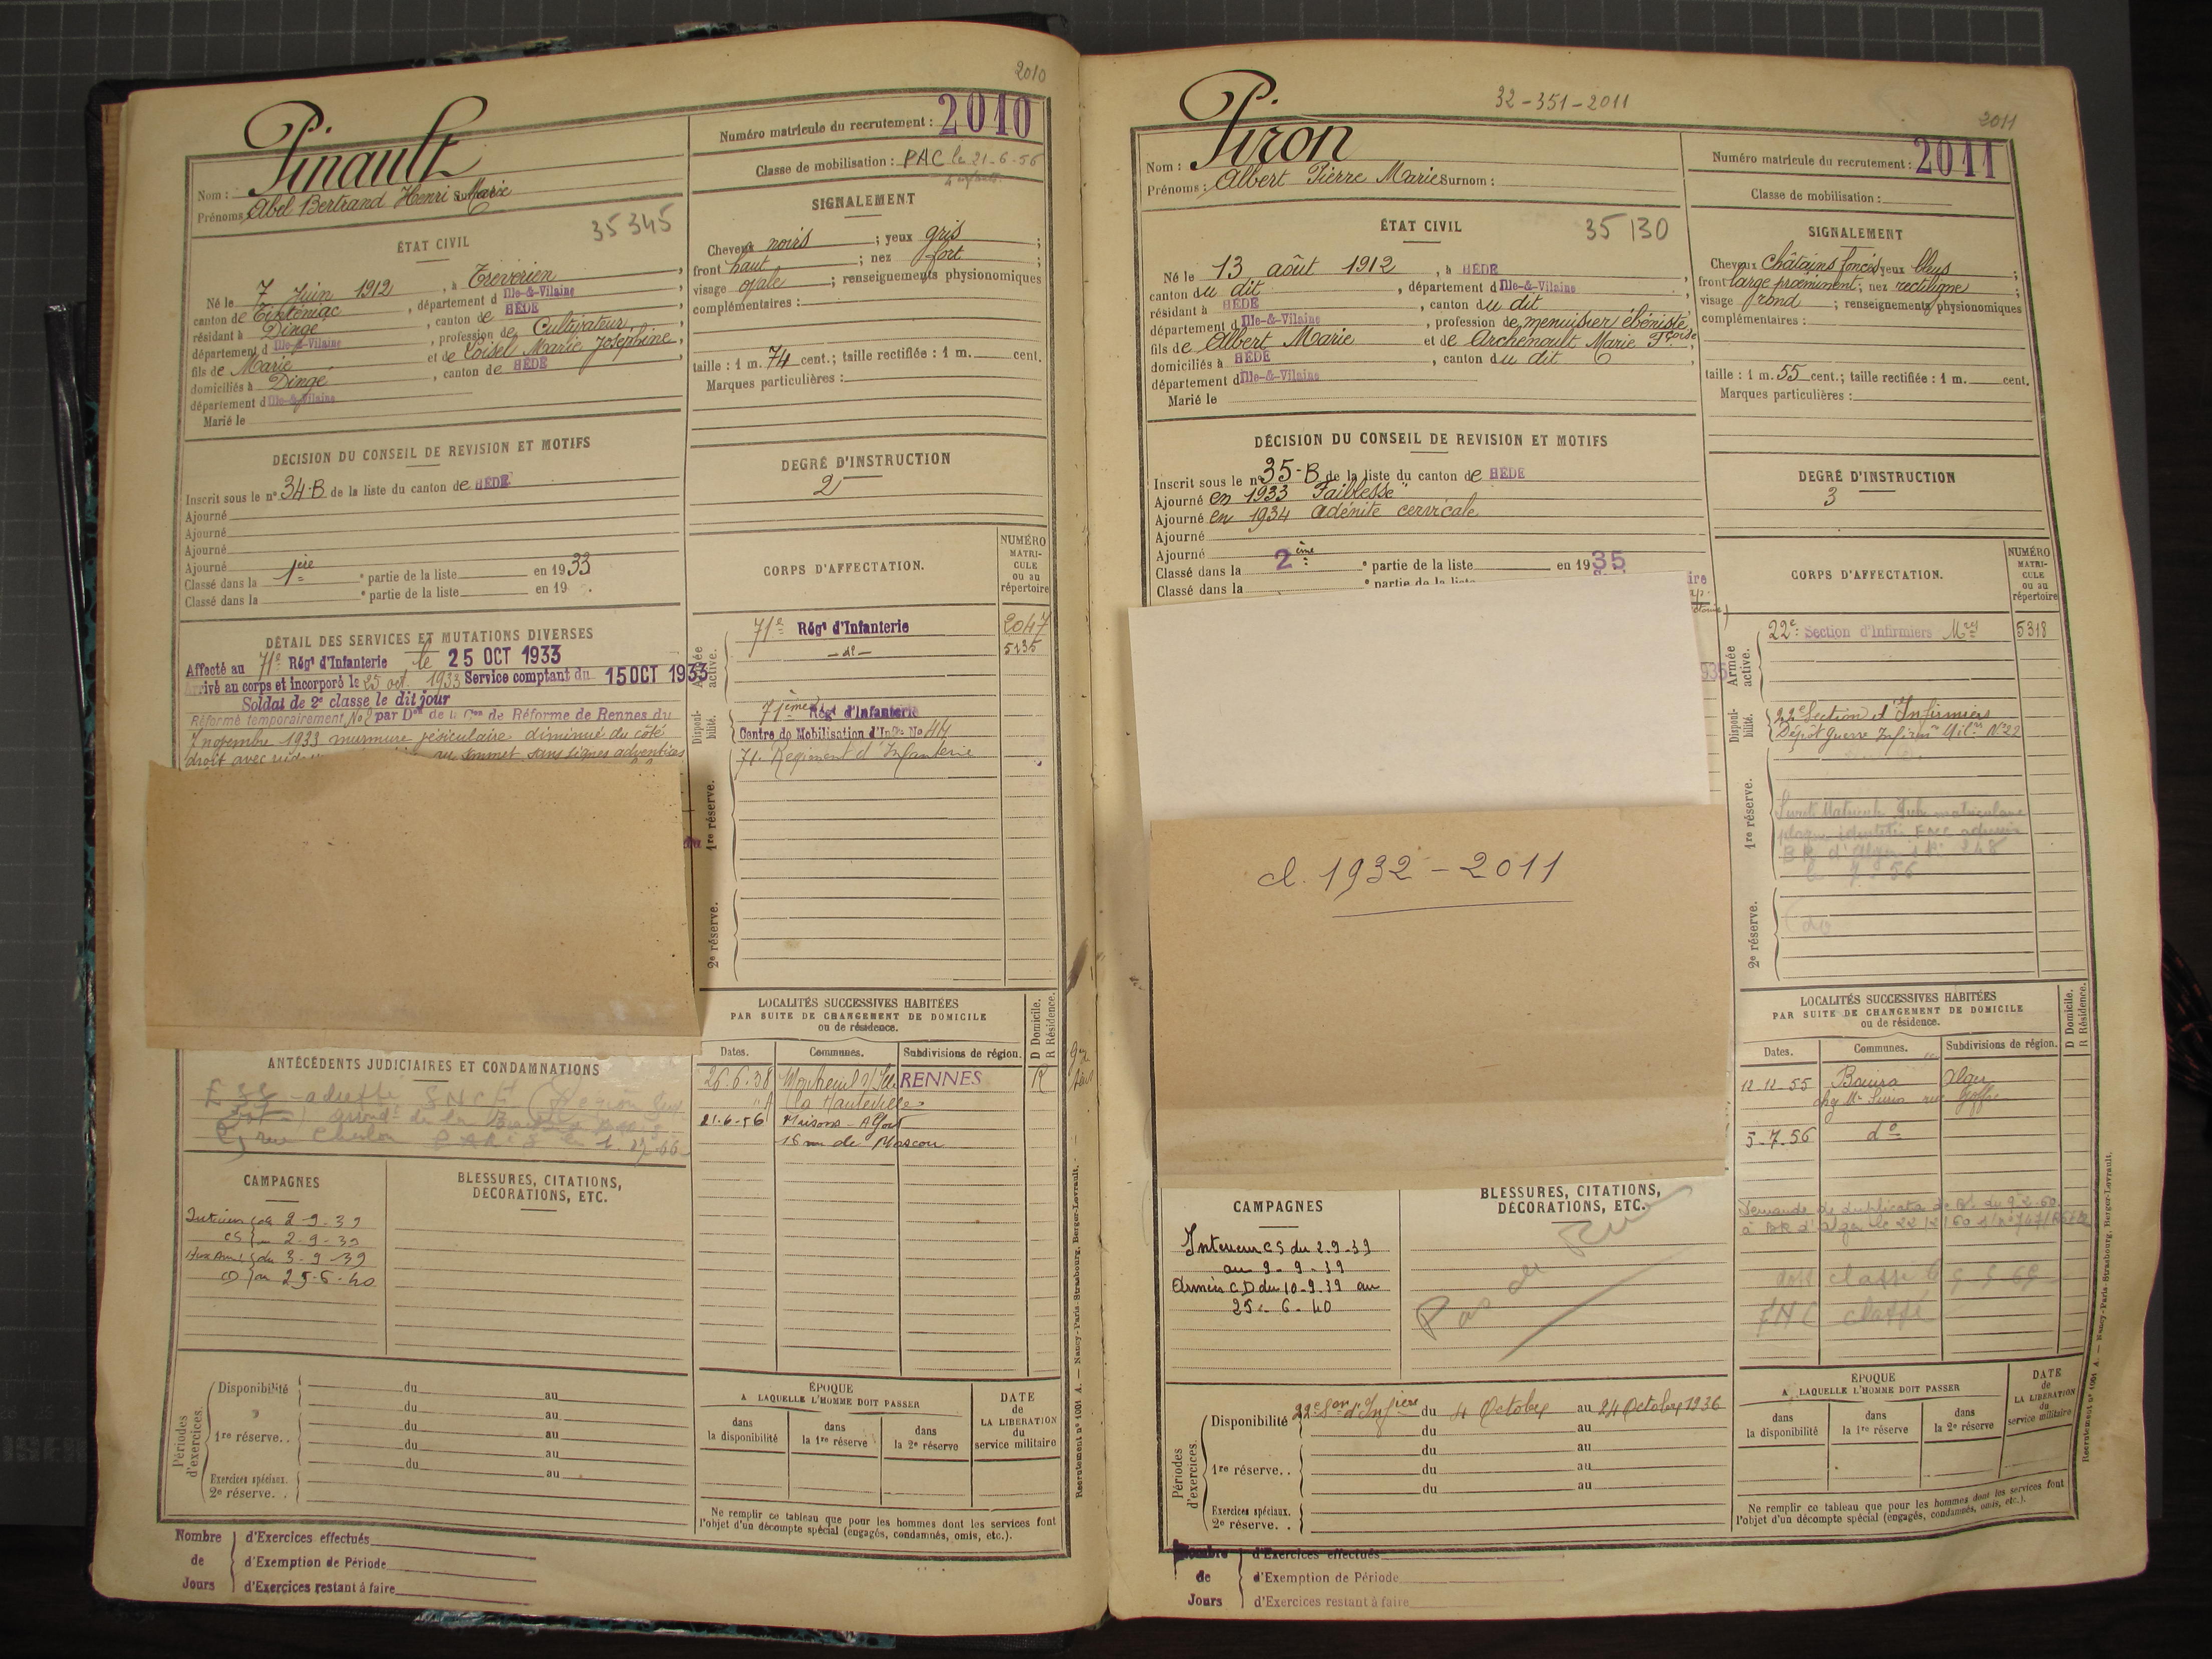 2010
Pinault
Nom :
Prénoms : Abel Bertrand Henri Marie
35345
ÉTAT CIVIL
Né le 7 Juin 1912, à Treverien,
canton de Tinténiac, département d Ille-&-Vilaine
résidant à Dingé, canton de HÉDÉ
département d Ille-&-Vilaine, profession de Cultivateur,
fils de Marie et de Loisel Marie Joséphine,
domiciliés à Dingé, canton de HÉDÉ,
département d Ille-&-Vilaine
Marié le
DÉCISION DU CONSEIL DE REVISION ET MOTIFS
Inscrit sous le n° 34-B de la liste du canton de HÉDÉ
Ajourné
Ajourné
Ajourné
Ajourné
Classé dans la 1ère partie de la liste en 1933
Classé dans la partie de la liste en 19
DÉTAIL DES SERVICES ET MUTATIONS DIVERSES
Affecté au 71e Régt d'Infanterie le 25 OCT 1933
Arrivé au corps et incorporé le 25 oct. 1933 Service comptant du 15 OCT 1933
Soldat de 2e classe le dit jour
Réformé temporairement No 2 par Don de la Con de Réforme de Rennes du
7 novembre 1933 murmure vésiculaire diminué du côté
droit avec au sommet sans signes adventices
ANTÉCÉDENTS JUDICIAIRES ET CONDAMNATIONS
adressé SNCF
PARIS
CAMPAGNES
Intérieur du 2-9-39
CS au 2-9-39
Aux Armées du 3-9-39
CD au 25-6-40
BLESSURES, CITATIONS,
DÉCORATIONS, ETC.
Périodes d'exercices.
Disponibilité du au
du au
1re réserve.. du au
du au
du au
Exercices spéciaux.
2e réserve. .
Nombre de Jours
d'Exercices effectués
d'Exemption de Période
d'Exercices restant à faire
Numéro matricule du recrutement : 2010
Classe de mobilisation : PAC le 21-6-56
4 enfants
SIGNALEMENT
Cheveux noirs ; yeux gris ;
front haut ; nez fort ;
visage ovale ; renseignements physionomiques
complémentaires :
taille : 1 m. 74 cent.; taille rectifiée : 1 m. cent.
Marques particulières :
DEGRÉ D'INSTRUCTION
2
CORPS D'AFFECTATION.
NUMÉRO
MATRI-
CULE
ou au
répertoire
Armée active.
71e Régt d'Infanterie 2047
-do- 5135
Disponibilité.
71ème Régt d'Infanterie
Centre de Mobilisation d'Infie No 44
71e Régiment d'Infanterie
1re réserve.
2e réserve.
LOCALITÉS SUCCESSIVES HABITÉES
PAR SUITE DE CHANGEMENT DE DOMICILE
ou de résidence.
D Domicile.
R Résidence.
Dates. Communes. Subdivisions de région.
26.6.38 Montreuil s/Ille RENNES R
la Hauteville
21-6-56 Maisons-Alfort
16 rue de Moscou
ÉPOQUE
A LAQUELLE L'HOMME DOIT PASSER
dans
la disponibilité
dans
la 1re réserve
dans
la 2e réserve
DATE
de
LA LIBERATION
du
service militaire
Ne remplir ce tableau que pour les hommes dont les services font
l'objet d'un décompte spécial (engagés, condamnés, omis, etc.).
Recrutement n° 1001 A. — Nancy-Paris-Strasbourg, Berger-Levrault.
32-351-2011
2011
Piron
Nom :
Prénoms : Albert Pierre Marie Surnom :
35130
ÉTAT CIVIL
Né le 13 août 1912, à HÉDÉ,
canton du dit, département d Ille-&-Vilaine
résidant à HÉDÉ, canton du dit
département d Ille-&-Vilaine, profession de menuisier ébéniste,
fils de Albert Marie et de Archenoult Marie Fçoise,
domiciliés à HÉDÉ, canton du dit
département d Ille-&-Vilaine
Marié le
DÉCISION DU CONSEIL DE REVISION ET MOTIFS
Inscrit sous le n° 35-B de la liste du canton de HÉDÉ
Ajourné en 1933 "Faiblesse"
Ajourné en 1934 adénite cervicale
Ajourné
Ajourné
Classé dans la 2ème partie de la liste en 1935
Classé dans la partie de la liste
cl. 1932 - 2011
CAMPAGNES
Intérieur CS du 2.9-39
au 9-9-39
Armées C.D du 10-9.39 au
25-6-40
BLESSURES, CITATIONS,
DÉCORATIONS, ETC.
Pas de
Périodes d'exercices.
Disponibilité 22e Son d'Infière du 4 Octobre au 24 Octobre 1936
du au
du au
1re réserve.. du au
du au
Exercices spéciaux.
2e réserve. .
Nombre de Jours
d'Exercices effectués
d'Exemption de Période
d'Exercices restant à faire
Numéro matricule du recrutement : 2011
Classe de mobilisation :
SIGNALEMENT
Cheveux châtains foncés yeux bleus ;
front large proéminent ; nez rectiligne ;
visage rond ; renseignements physionomiques
complémentaires :
taille : 1 m. 55 cent.; taille rectifiée : 1 m. cent.
Marques particulières :
DEGRÉ D'INSTRUCTION
3
CORPS D'AFFECTATION.
NUMÉRO
MATRI-
CULE
ou au
répertoire
Armée active.
22e Section d'Infirmiers Mres 5318
Disponibilité.
22e Section d'Infirmiers
Dépôt Guerre Infirm Milre N°22
1re réserve.
BR d'Alger
2e réserve.
LOCALITÉS SUCCESSIVES HABITÉES
PAR SUITE DE CHANGEMENT DE DOMICILE
ou de résidence.
D Domicile.
R Résidence.
Dates. Communes. Subdivisions de région.
12-12-55 Bouira Alger
chez Mr rue Joffre
5-7-56 do
Demande de duplicata de
à BR d'Alger le
classé
FNC classé
ÉPOQUE
A LAQUELLE L'HOMME DOIT PASSER
dans
la disponibilité
dans
la 1re réserve
dans
la 2e réserve
DATE
de
LA LIBERATION
du
service militaire
Ne remplir ce tableau que pour les hommes dont les services font
l'objet d'un décompte spécial (engagés, condamnés, omis, etc.).
Recrutement n° 1001 A. — Nancy-Paris-Strasbourg, Berger-Levrault.